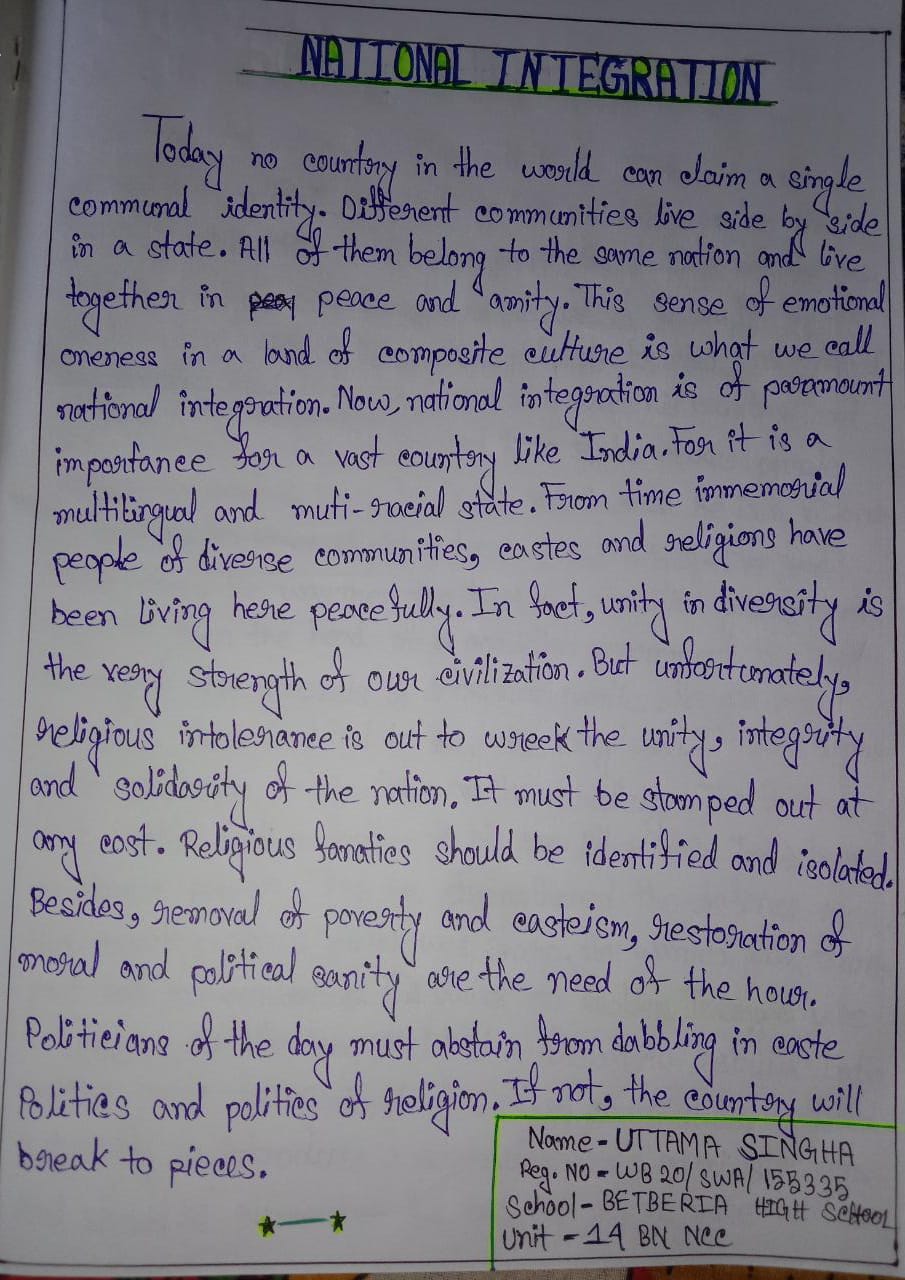 NATIONAL INTEGRATION
Today no country in the world can claim a single
communal identity. Different communities live side by side
in a state. All of them belong to the same nation and live
together in peace and amity. This sense of emotional
oneness in a land of composite culture is what we call
national integration. Now, national integration is of paramount
importance for a vast country like India. For it is a
multilingual and muti-racial state. From time immemorial
people of diverse communities, castes and religions have
been living here peacefully. In fact, unity in diversity is
the very strength of our civilization. But unfortunately,
religious intolerance is out to wreck the unity, integrity
and solidarity of the nation. It must be stamped out at
any cost. Religious fanatics should be identified and isolated.
Besides, removal of poverty and casteism, restoration of
moral and political sanity are the need of the hour.
Politicians of the day must abstain from dabbling in caste
Politics and politics of religion. If not, the country will
break to pieces.
Name - UTTAMA SINGHA
Reg. NO - WB 20/SWA/155335
School - BETBERIA HIGH SCHOOL
Unit - 14 BN NCC